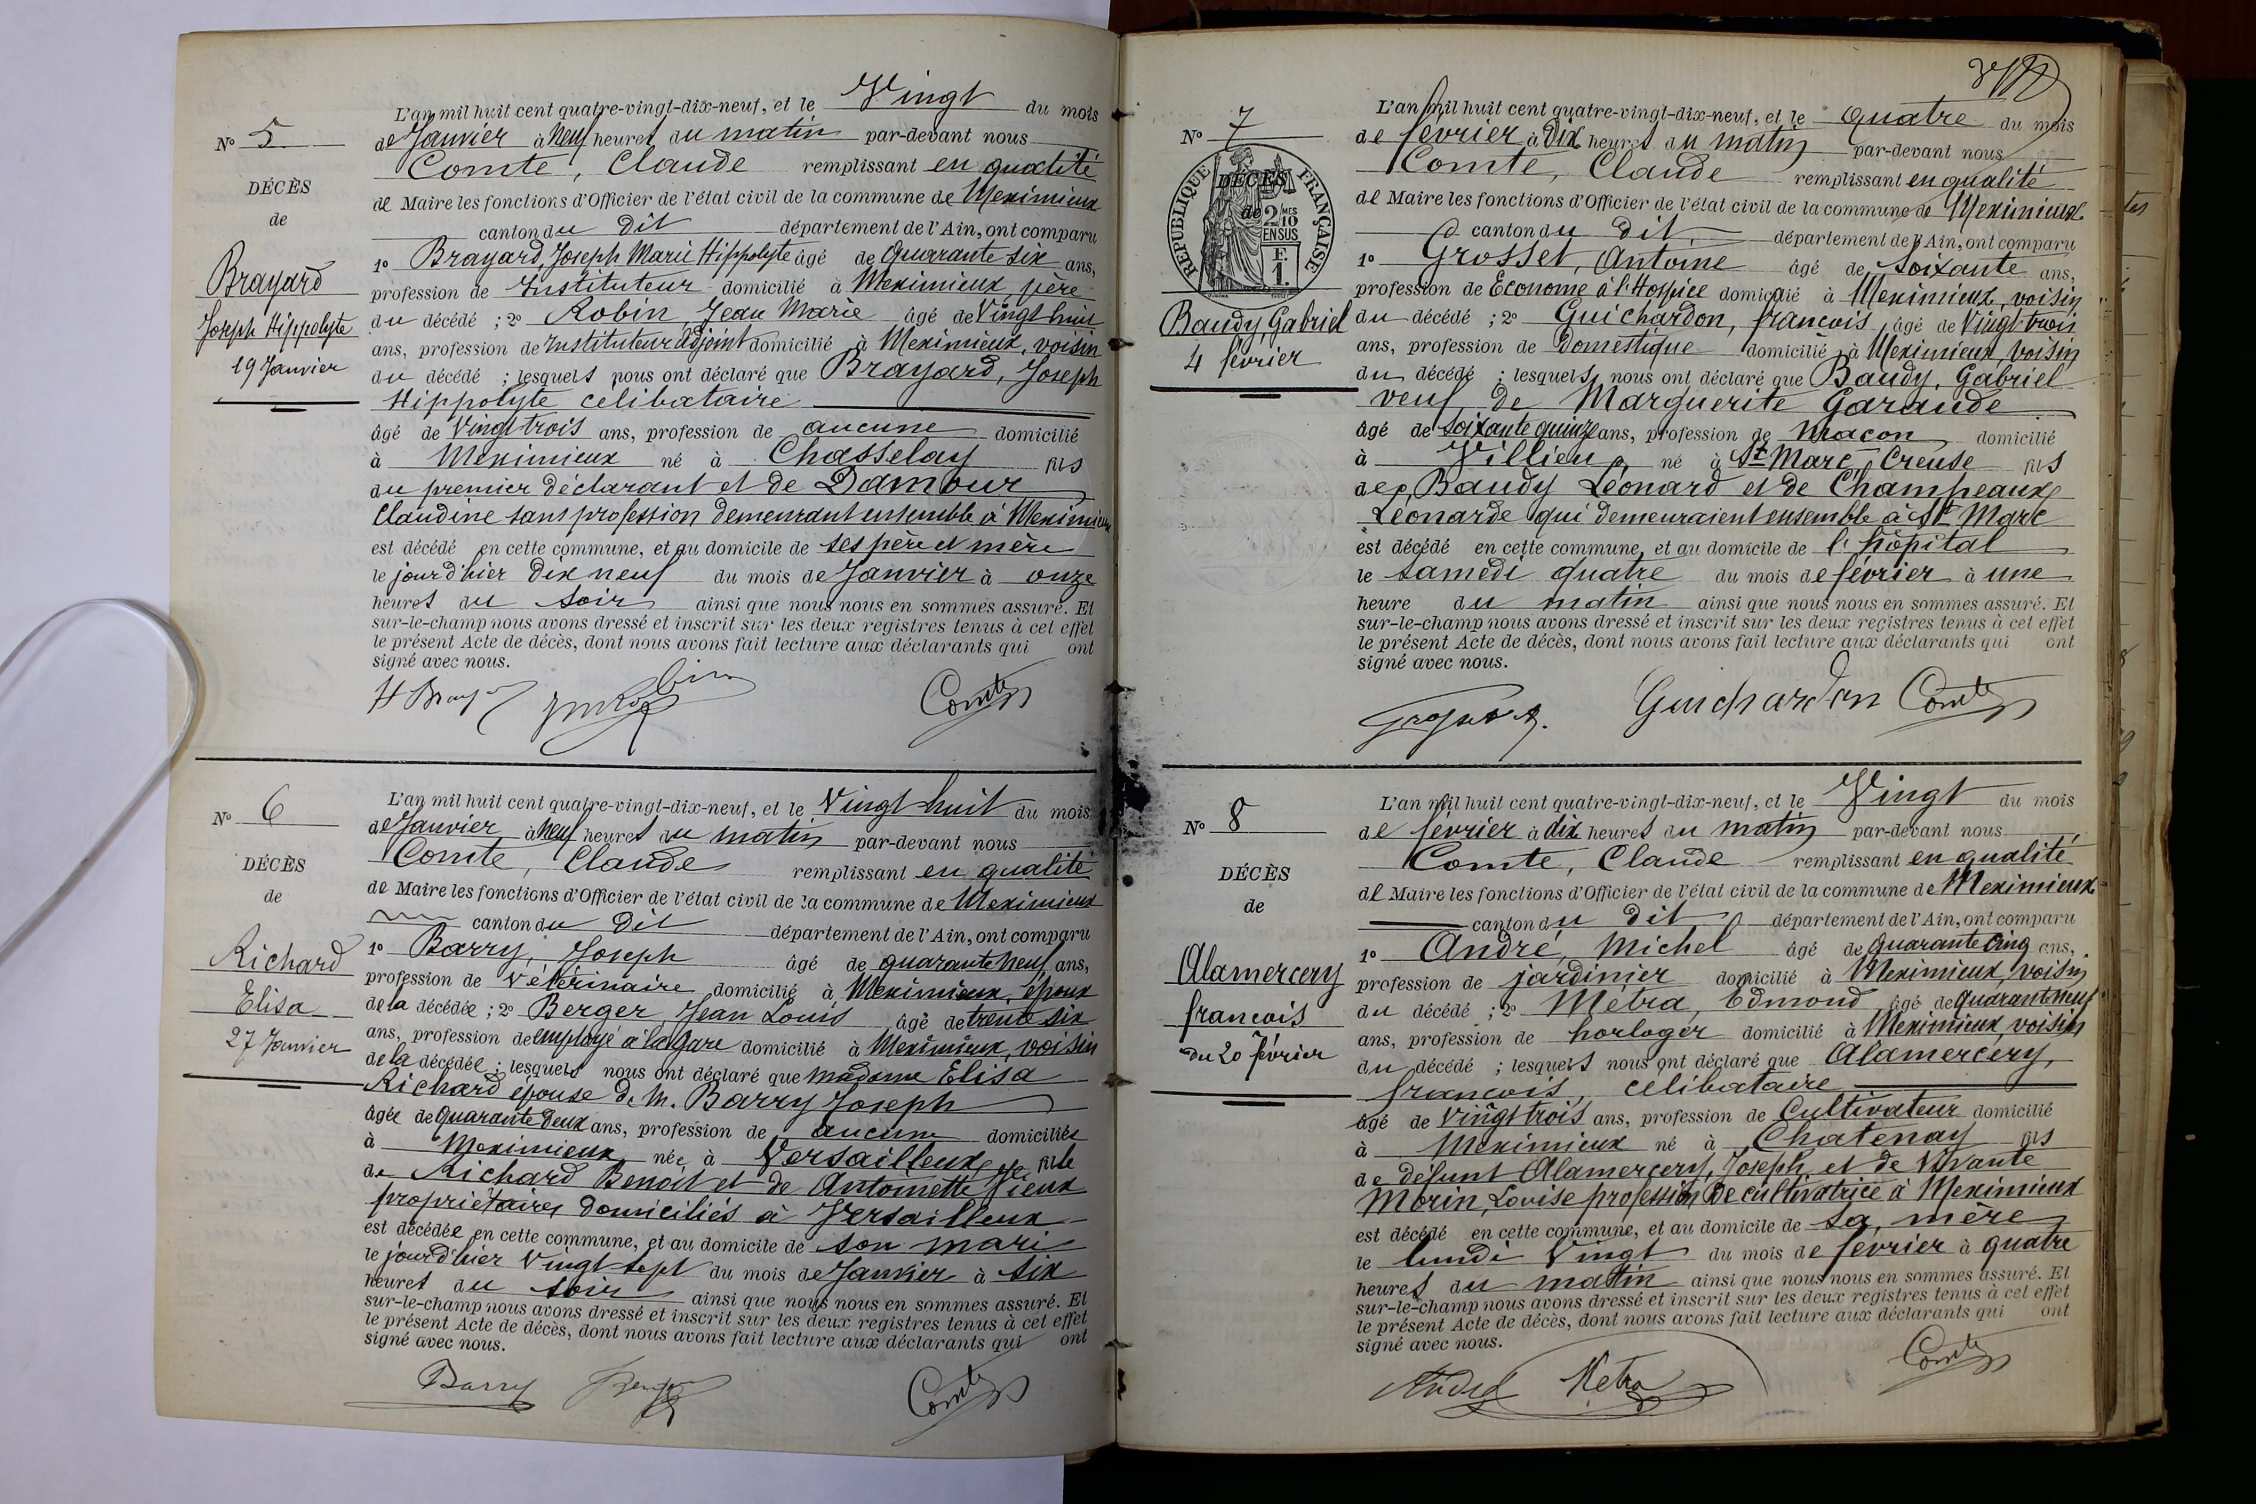 N° 5
DÉCÈS
de
Brayard
Joseph Hippolyte
19 Janvier
L'an mil huit cent quatre-vingt-dix-neuf, et le Vingt du mois
de Janvier à Neuf heures du matin par-devant nous
Comte, Claude remplissant en qualité
de Maire les fonctions d'Officier de l'état civil de la commune de Meximieux
canton du dit département de l'Ain, ont comparu
1° Brayard, Joseph Marie Hippolyte âgé de Quarante six ans,
profession de Instituteur domicilié à Meximieux père
du décédé ; 2° Robin, Jean Marie âgé de Vingt huit
ans, profession de Instituteur adjoint domicilié à Meximieux, voisin
du décédé ; lesquels nous ont déclaré que Brayard, Joseph
Hippolyte celibataire
âgé de Vingt trois ans, profession de aucune domicilié
à Meximieux né à Chasselay fils
du premier déclarant et de Damour
Claudine sans profession demeurant ensemble à Meximieux
est décédé en cette commune, et au domicile de ses père et mère
le jour d'hier dix neuf du mois de Janvier à onze
heures du soir ainsi que nous nous en sommes assuré. Et
sur-le-champ nous avons dressé et inscrit sur les deux registres tenus à cet effet
le présent Acte de décès, dont nous avons fait lecture aux déclarants qui ont
signé avec nous.
H Bray JM Robin Comte
N° 6
DÉCÈS
de
Richard
Elisa
27 Janvier
L'an mil huit cent quatre-vingt-dix-neuf, et le Vingt huit du mois
de Janvier à Neuf heures du matin par-devant nous
Comte, Claude remplissant en qualité
de Maire les fonctions d'Officier de l'état civil de la commune de Meximieux
canton du dit département de l'Ain, ont comparu
1° Barry, Joseph âgé de quarante neuf ans,
profession de Vétérinaire domicilié à Meximieux, époux
de la décédée ; 2° Berger, Jean Louis âgé de trente six
ans, profession de employé à la gare domicilié à Meximieux, voisin
de la décédée ; lesquels nous ont déclaré que madame Elisa
Richard épouse de M. Barry Joseph
âgée de quarante deux ans, profession de aucune domiciliée
à Meximieux née à Versailleux fille
de Richard Benoit et de Antoinette Vieux
propriétaires domiciliés à Versailleux
est décédée en cette commune, et au domicile de son mari
le jour d'hier Vingt sept du mois de Janvier à six
heures du soir ainsi que nous nous en sommes assuré. Et
sur-le-champ nous avons dressé et inscrit sur les deux registres tenus à cet effet
le présent Acte de décès, dont nous avons fait lecture aux déclarants qui ont
signé avec nous.
Barry Comte
N° 7
DÉCÈS
de
RÉPUBLIQUE FRANÇAISE
2 MES
10
EN SUS
F.
1.
Baudy Gabriel
4 février
L'an mil huit cent quatre-vingt-dix-neuf, et le quatre du mois
de février à dix heures du matin par-devant nous
Comte, Claude remplissant en qualité
de Maire les fonctions d'Officier de l'état civil de la commune de Meximieux
canton du dit département de l'Ain, ont comparu
1° Grosset, Antoine âgé de soixante ans,
profession de Econome à l'Hospice domicilié à Meximieux, voisin
du décédé ; 2° Guichardon, francois âgé de Vingt trois
ans, profession de Domestique domicilié à Meximieux, voisin
du décédé ; lesquels nous ont déclaré que Baudy, Gabriel
veuf de Marguerite Garaude
âgé de soixante quinze ans, profession de macon domicilié
à Villieu né à St Marc, Creuse fils
de Baudy Léonard et de Champeaux
Léonarde qui demeuraient ensemble à St Marc
est décédé en cette commune, et au domicile de l'hôpital
le samedi quatre du mois de février à une
heure du matin ainsi que nous nous en sommes assuré. Et
sur-le-champ nous avons dressé et inscrit sur les deux registres tenus à cet effet
le présent Acte de décès, dont nous avons fait lecture aux déclarants qui ont
signé avec nous.
Guichardon Comte
N° 8
DÉCÈS
de
Alamercery
francois
du 20 février
L'an mil huit cent quatre-vingt-dix-neuf, et le Vingt du mois
de février à dix heures du matin par-devant nous
Comte, Claude remplissant en qualité
de Maire les fonctions d'Officier de l'état civil de la commune de Meximieux
canton du dit département de l'Ain, ont comparu
1° André, Michel âgé de quarante cinq ans,
profession de jardinier domicilié à Meximieux, voisin
du décédé ; 2° Métra, Edmond âgé de quarante neuf
ans, profession de horloger domicilié à Meximieux, voisin
du décédé ; lesquels nous ont déclaré que Alamercery,
francois celibataire
âgé de Vingt trois ans, profession de Cultivateur domicilié
à Meximieux né à Chatenay fils
de défunt Alamercery, Joseph et de Vivante
Morin, Louise profession de cultivatrice à Meximieux
est décédé en cette commune, et au domicile de sa mère
le lundi Vingt du mois de février à quatre
heures du matin ainsi que nous nous en sommes assuré. Et
sur-le-champ nous avons dressé et inscrit sur les deux registres tenus à cet effet
le présent Acte de décès, dont nous avons fait lecture aux déclarants qui ont
signé avec nous.
André Métra Comte